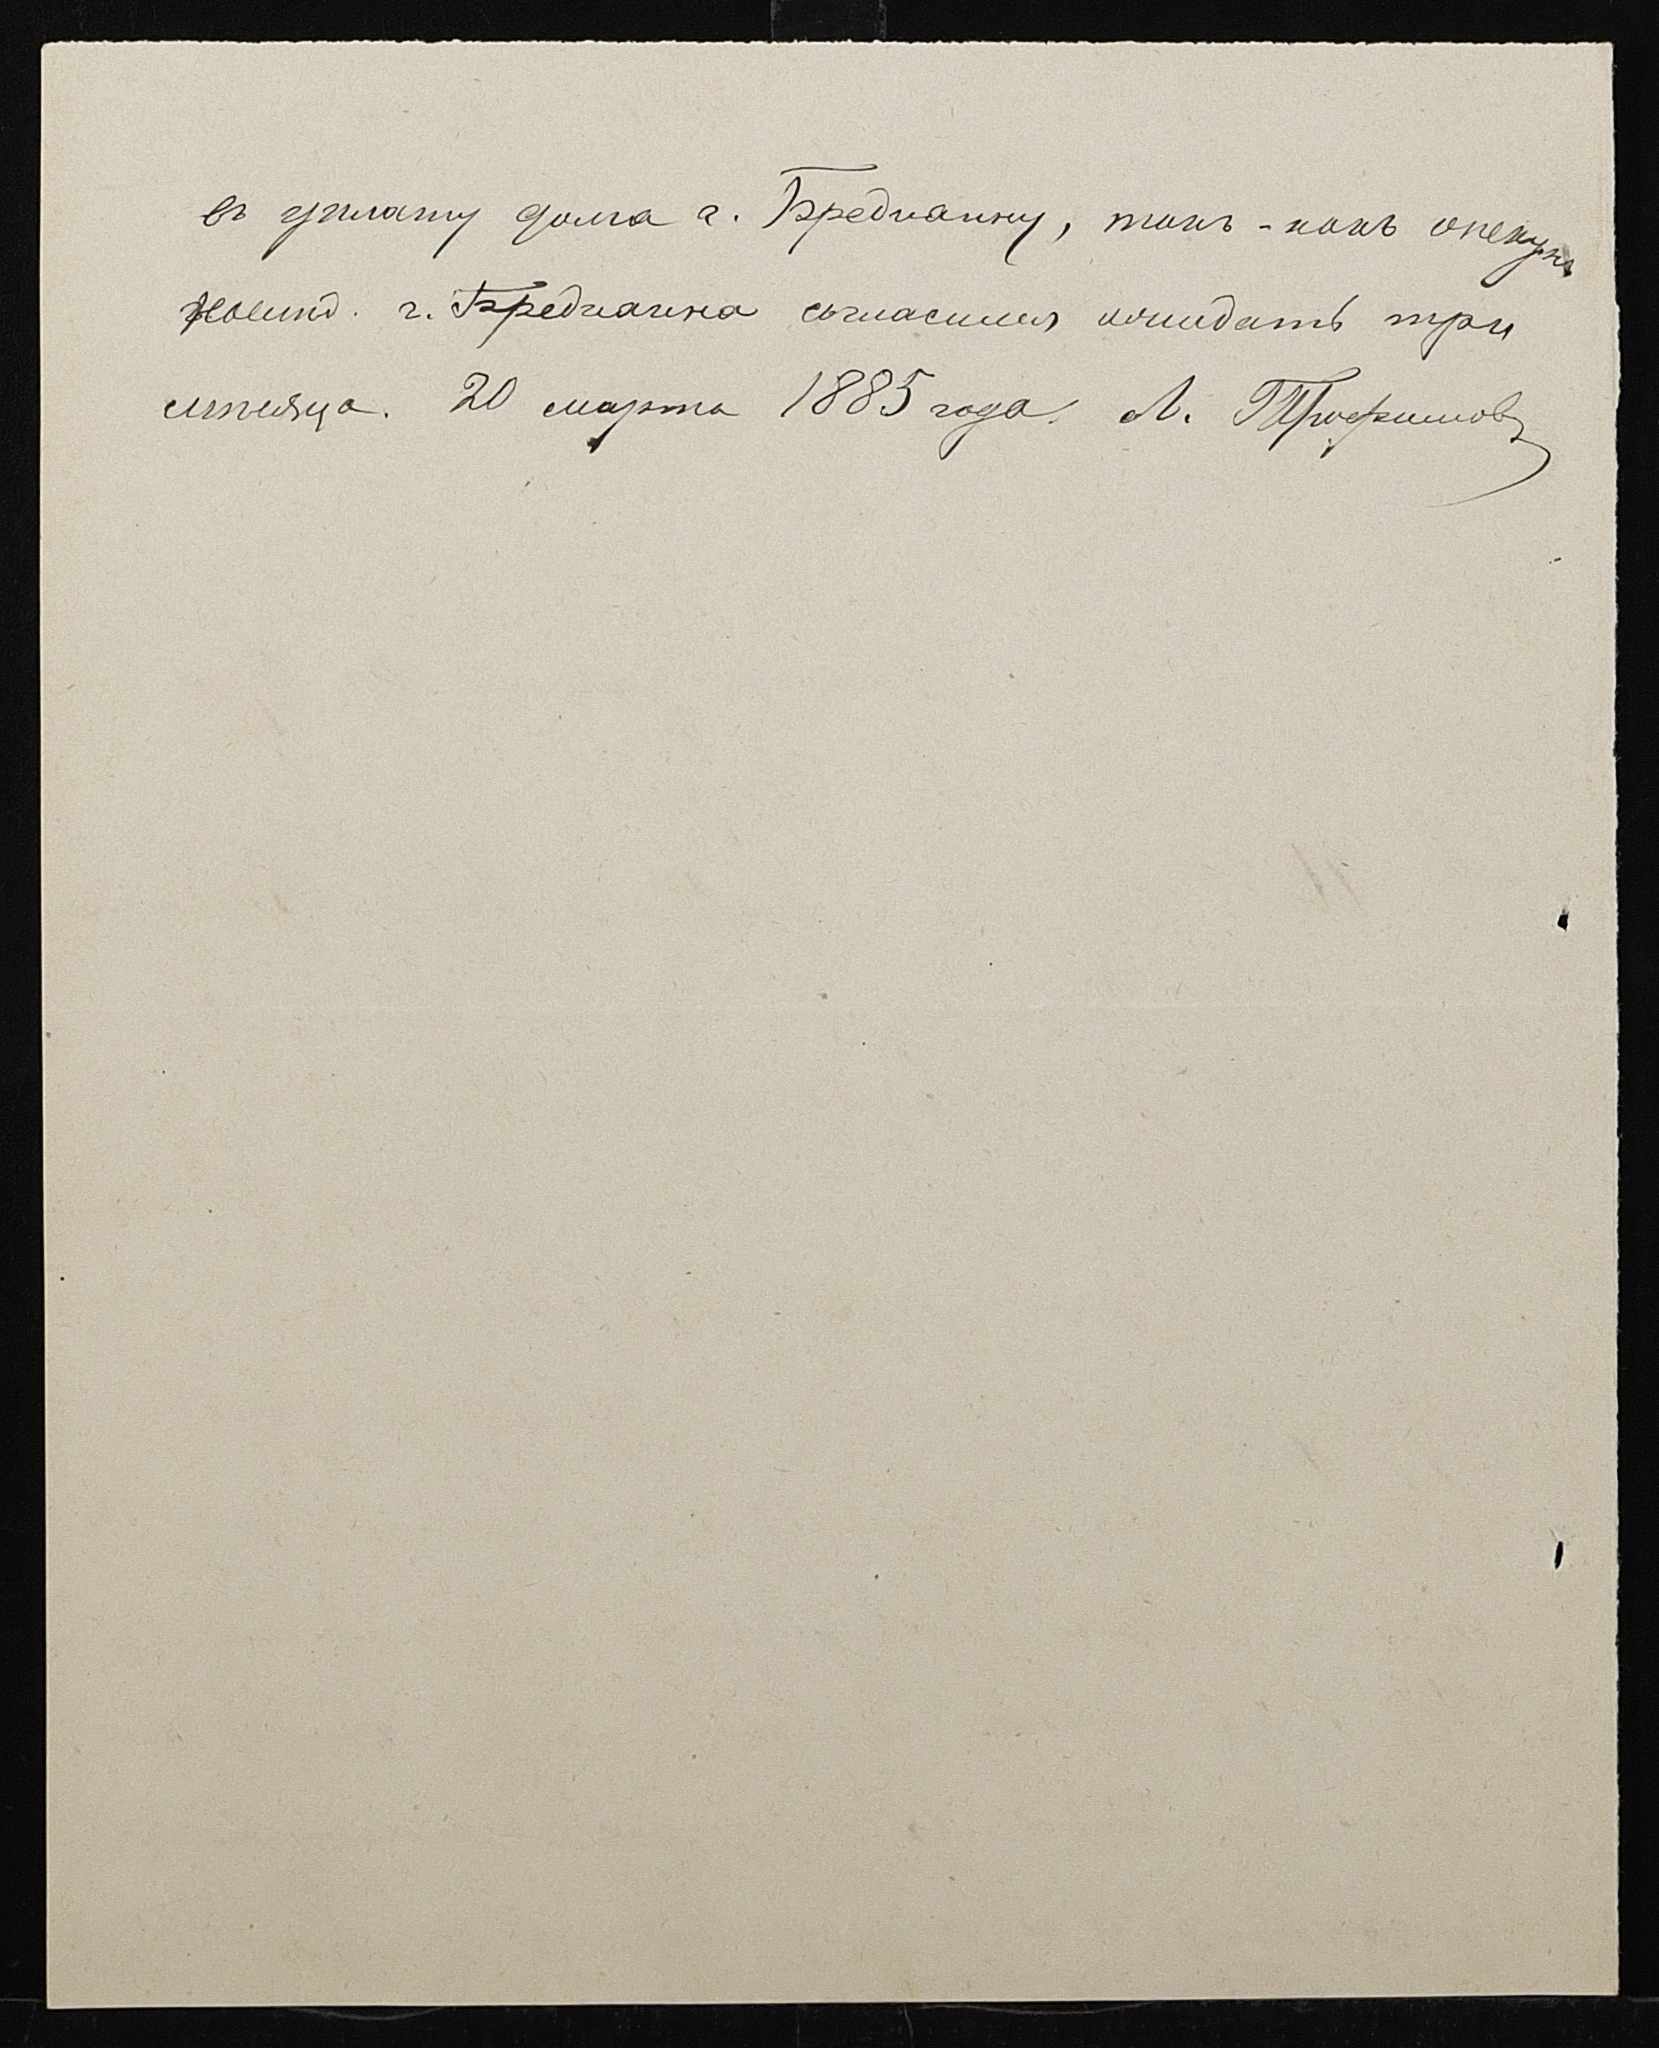 въ уплату долга г. Бредиахину, такъ-какъ опекунъ
г. Бредиахина согласился ожидать три
мѣсяца. 20 марта 1885 года. Л. Трофимовъ